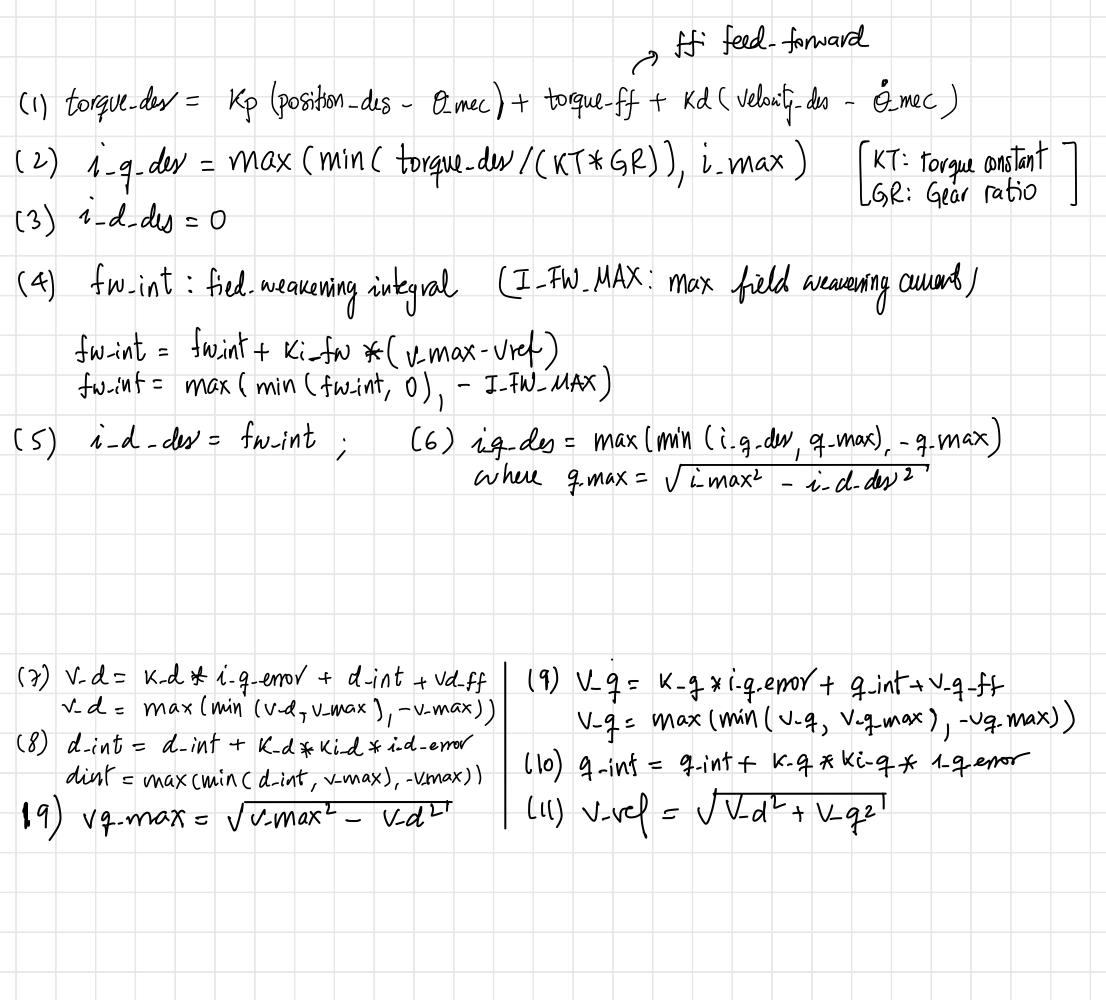 ff: feed-forward
(1) torque_des = Kp (position_des - θ_mec) + torque_ff + Kd (velocity_des - θ̇_mec)
(2) i_q_des = max (min ( torque_des /(KT*GR)), i_max ) [KT: torque constant
GR: Gear ratio]
(3) i_d_des = 0
(4) fw_int : fied_weakening integral (I_FW_MAX: max field weavening current)
fw_int = fw_int + Ki_fw *( v_max - Vref)
fw_int = max ( min ( fw_int, 0), - I_FW_MAX)
(5) i_d_des = fw_int ; (6) iq_des = max (min (i_q_des, q_max), -q_max)
where q_max = √(i_max² - i_d_des²)
(7) V_d = K_d * i_q_error + d_int + Vd_ff
V_d = max (min (v_d, v_max ), -v_max))
(8) d_int = d_int + K_d * Ki_d * i_d_error
dint = max (min ( d_int, v_max), -vmax))
19) Vq_max = √(v_max² - V_d²)
(9) V_q = K_q * i_q_error + q_int + V_q_ff
V_q = max (min ( v_q, V_q_max ), -Vq_max))
(10) q_int = q_int + K_q * Ki_q * i_q_error
(11) V_ref = √(V_d² + V_q²)